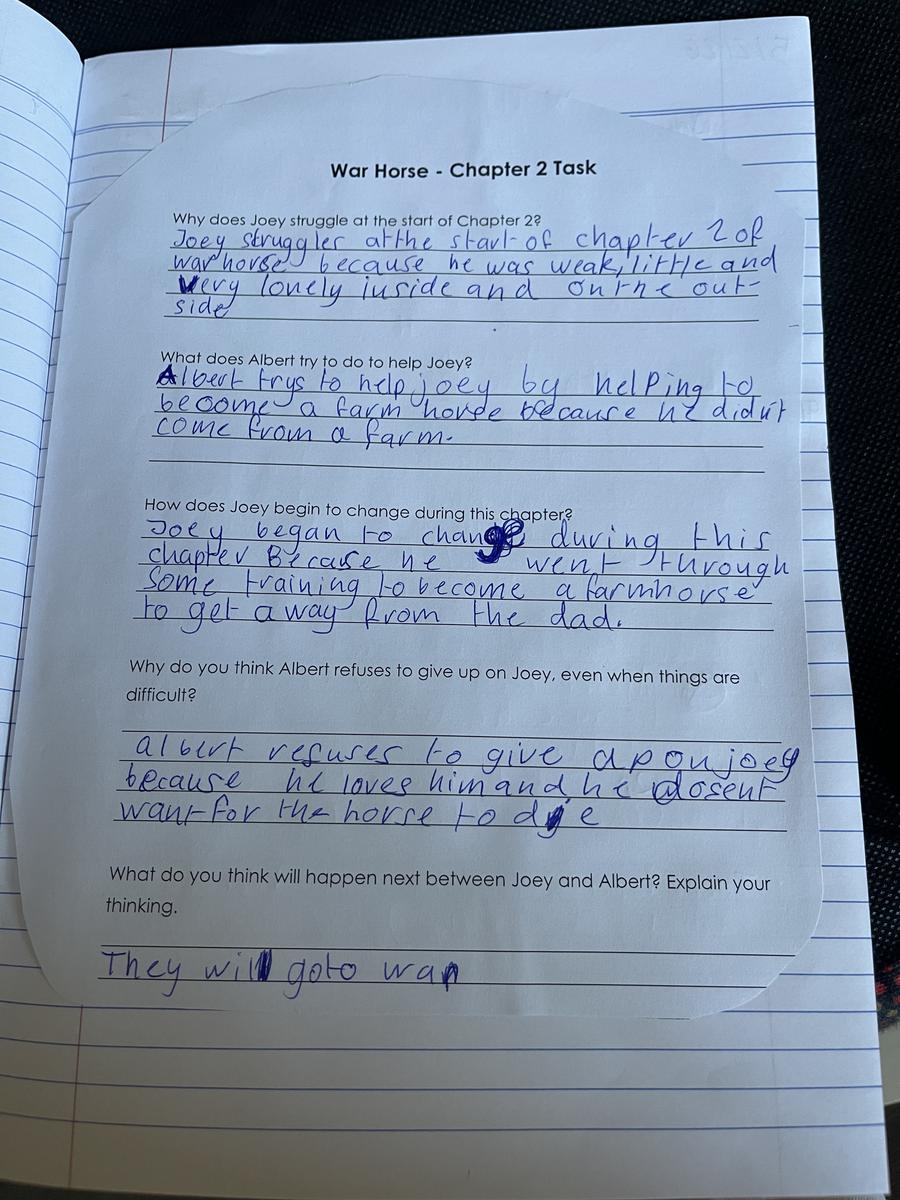 War Horse - Chapter 2 Task
Why does Joey struggle at the start of Chapter 2?
Joey struggles at the start of chapter 2 of
war horse because he was weak, little and
very lonely inside and on the out-
side
What does Albert try to do to help Joey?
Albert trys to help joey by helping to
become a farm horse because he didn't
come from a farm.
How does Joey begin to change during this chapter?
Joey began to change during this
chapter Because he went through
some training to become a farmhorse
to get away from the dad.
Why do you think Albert refuses to give up on Joey, even when things are
difficult?
albert refuses to give up on joey
because he loves him and he dosent
want for the horse to die
What do you think will happen next between Joey and Albert? Explain your
thinking.
They will go to war